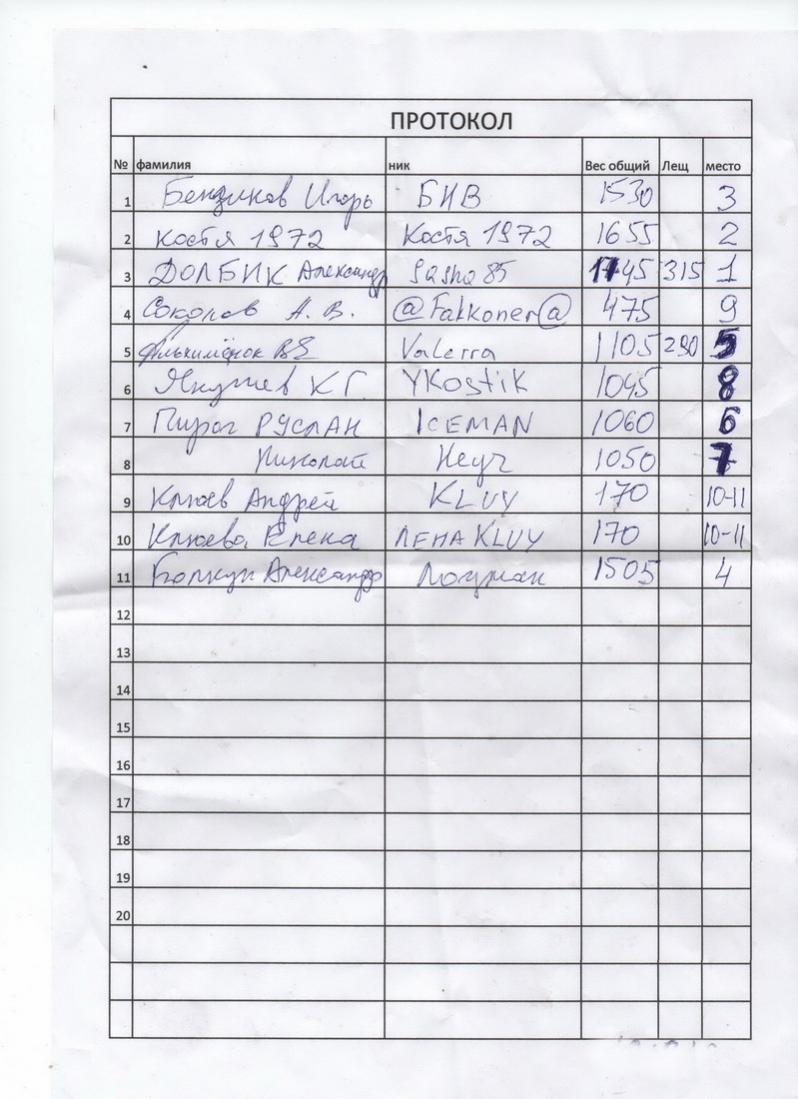 ПРОТОКОЛ
№ фамилия ник Вес общий Лещ место
1 Бендиков Игорь БИВ 1530 3
2 Костя 1972 Костя 1972 1655 2
3 ДОЛБИК Александр Sasha 85 1745 315 1
4 Соколов А. В. @Falkoner@ 475 9
5 Valerra 1105 290 5
6 Якушев К Г. YKostik 1045 8
7 Пирог РУСЛАН ICEMAN 1060 6
8 Николай 1050 7
9 Клюев Андрей KLUY 170 10-11
10 Клюева Елена ЛЕНА KLUY 170 10-11
11 Александр Лоцман 1505 4
12
13
14
15
16
17
18
19
20